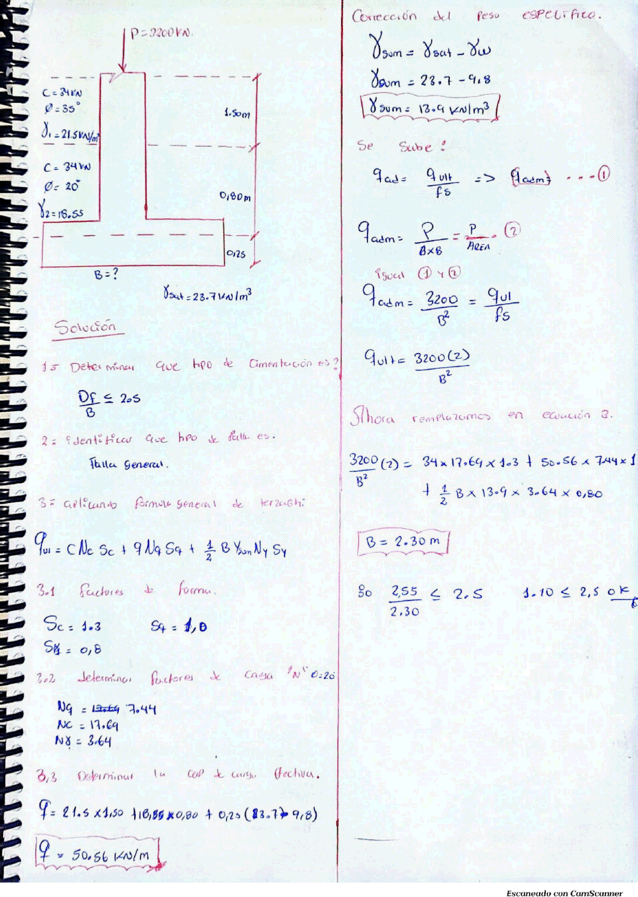 P=3200KN.
C=34KN
Ø=35°
γ1=21.5KN/m³
1.50m
C=34KN
Ø=20°
γ2=18.55
0,80m
0,25
B=?
γsat=23.7KN/m³
Solución
1= Determinar que tipo de Cimentación es?
Df/B ≤ 2.5
2= identificar que tipo de falla es.
Falla General.
3= aplicando formula general de terzaghi
qul = CNc Sc + qNq Sq + 1/2 B γsum Nγ Sγ
3.1 Factores de forma.
Sc = 1.3 Sq = 1,0
Sγ = 0,8
3.2 determinar factores de carga "N" Ø=20
Nq = 7.44
Nc = 17.69
Nγ = 3.64
3,3 Determinar la cap de carga efectiva.
q = 21.5 x 1,50 + 18,55 x 0,80 + 0,25 (23.7 - 9,8)
q = 50.56 KN/m
Corrección del Peso especifico.
γsum = γsat - γw
γsum = 23.7 - 9.8
γsum = 13.9 KN/m³
Se Sabe!
qad = qult/fs => qadm} ---①
qadm = P/BxB = P/AREA - ②
Igual ① y ②
qadm = 3200/B² = qul/fs
qult = 3200(2)/B²
Ahora remplazamos en ecuación 3.
3200/B² (2) = 34 x 17.69 x 1.3 + 50.56 x 7.44 x 1
+ 1/2 B x 13.9 x 3.64 x 0,80
B = 2.30 m
So 2,55/2.30 ≤ 2.5 1.10 ≤ 2,5 ok
Escaneado con CamScanner